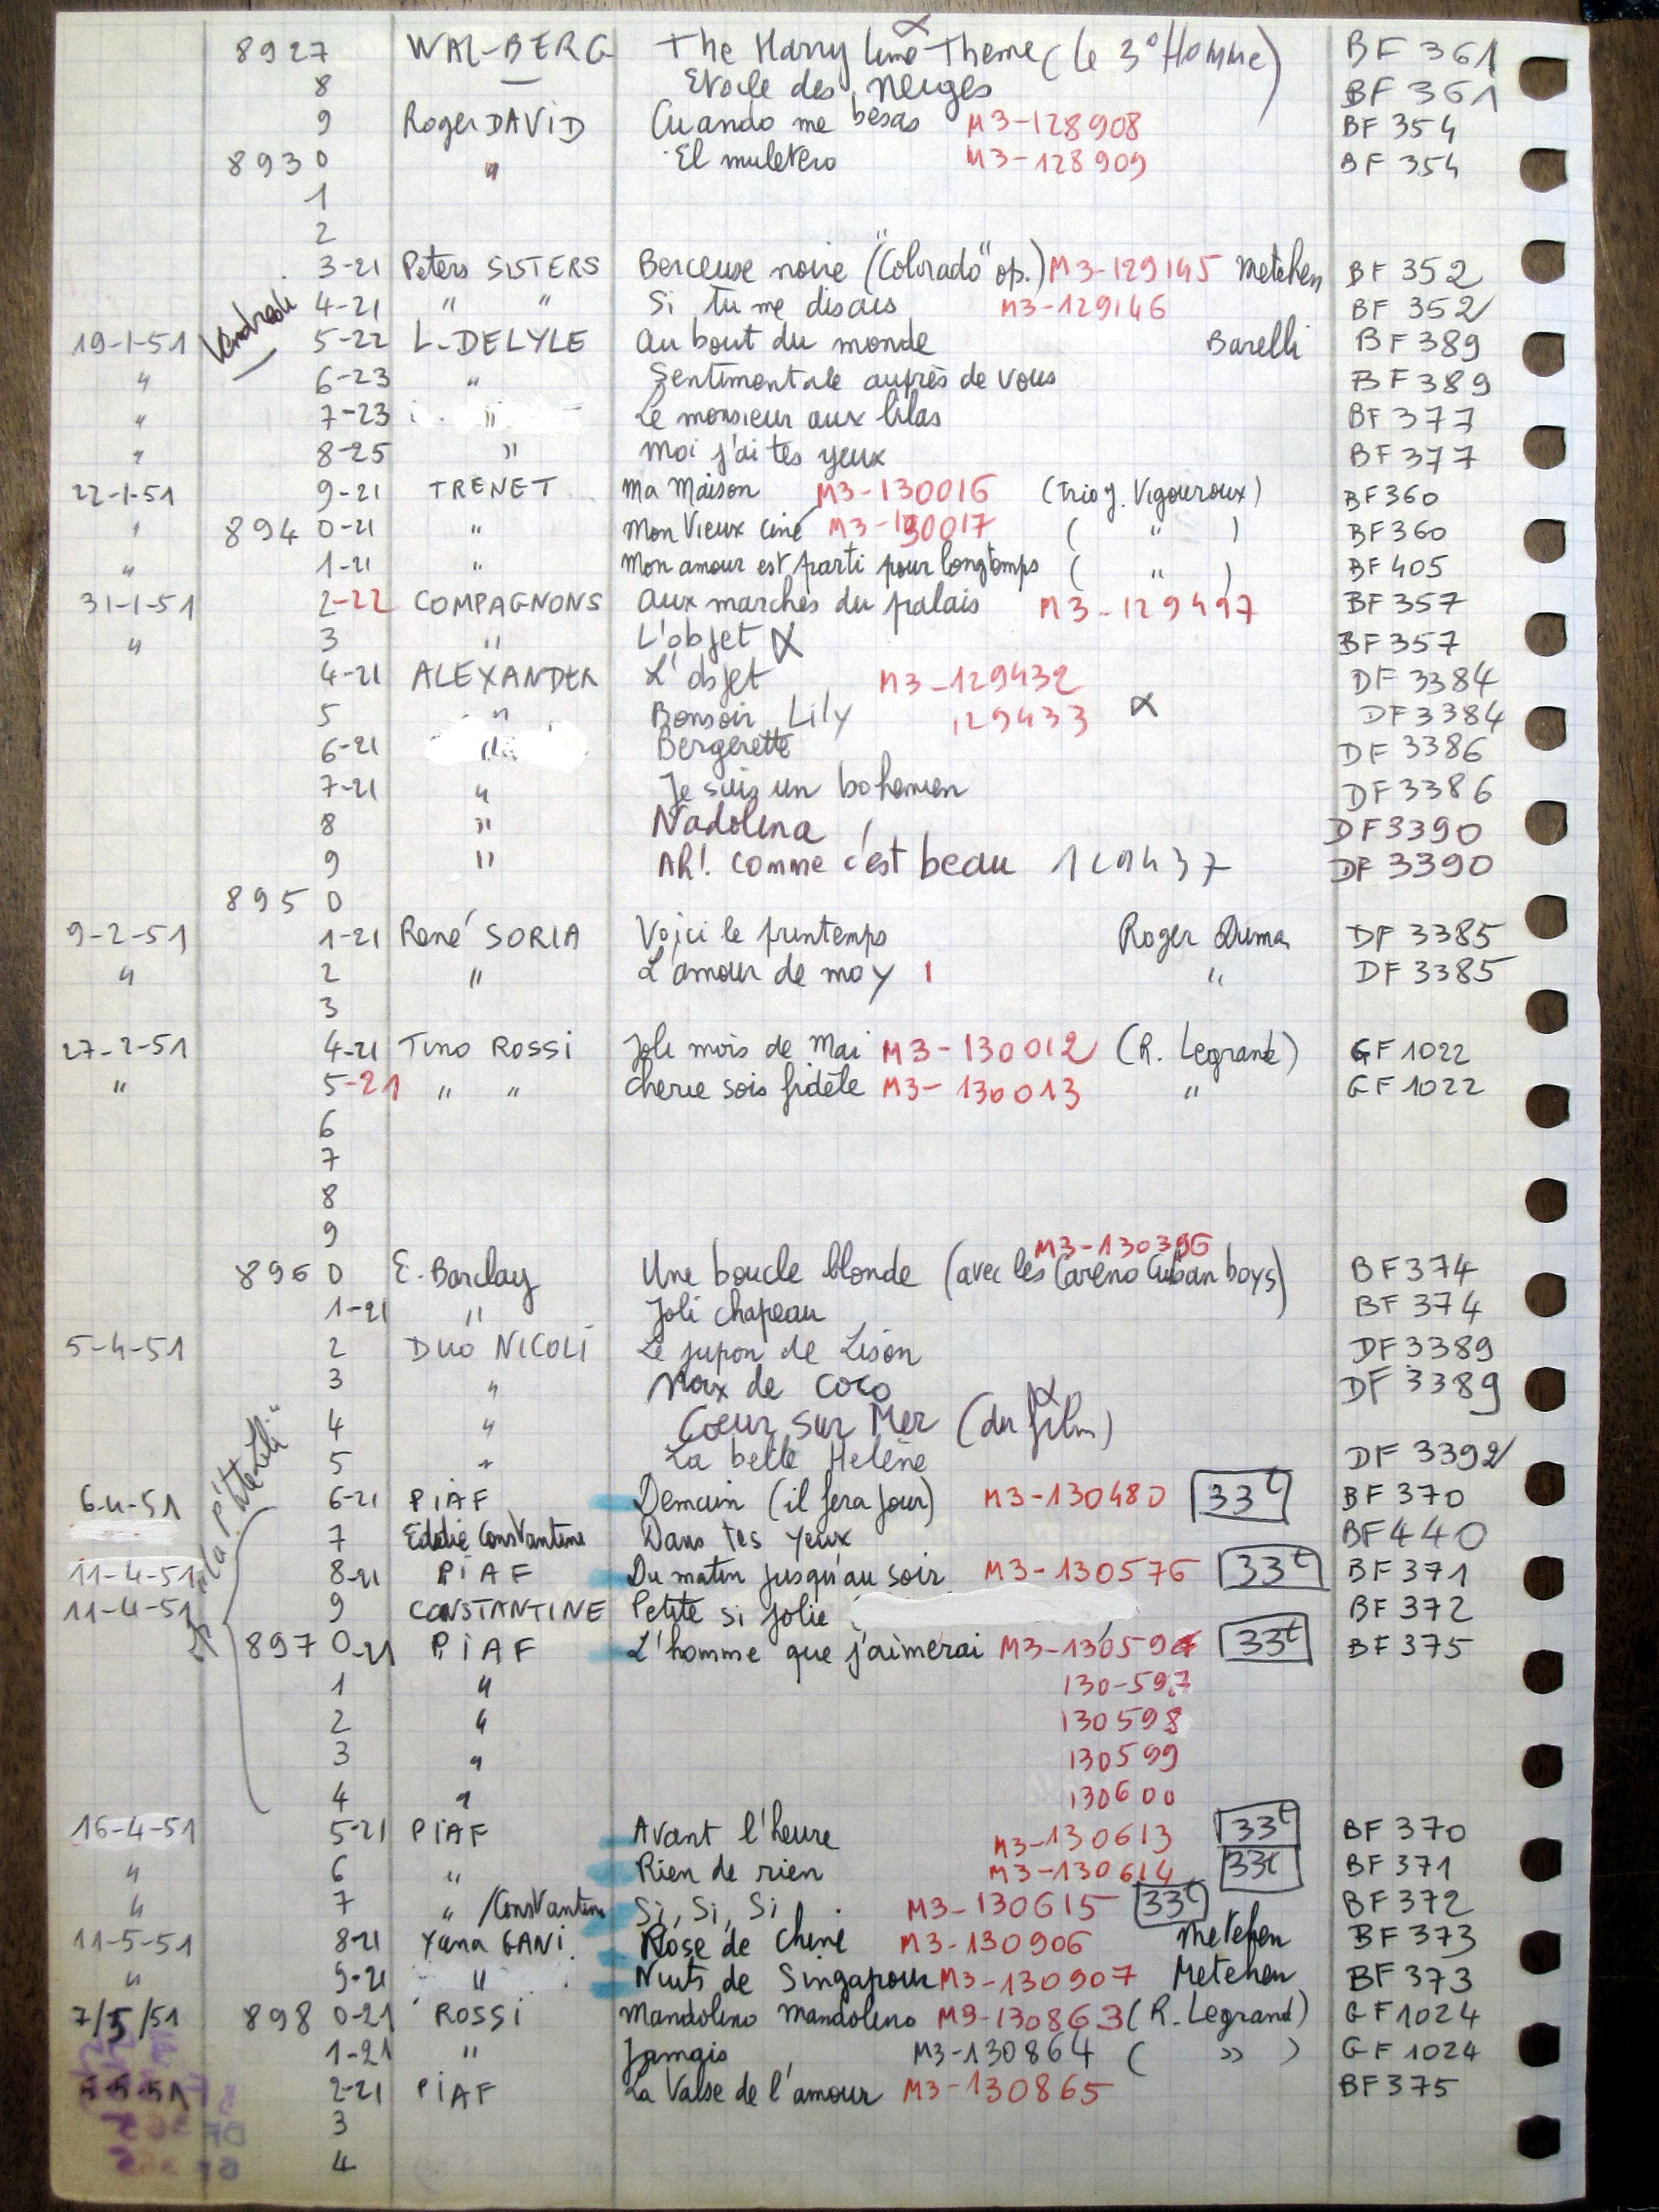 8927 WAL-BERG The Harry Lime Theme (Le 3° Homme) BF 361
8 — Etoile des neiges BF 361
9 Roger DAVID Cuando me besas M3-128908 BF 354
8930 " El muletero M3-128909 BF 354
1
2
3-21 Peters SISTERS Berceuse noire ("Colorado" op.) M3-129145 Metehen BF 352
4-21 " " Si tu me disais M3-129146 BF 352
19-1-51 Vendredi 5-22 L. DELYLE Au bout du monde Barelli BF 389
" 6-23 " Sentimentale auprès de vous BF 389
" 7-23 " Le monsieur aux lilas BF 377
" 8-25 " Moi j'ai tes yeux BF 377
22-1-51 9-21 TRENET Ma Maison M3-130016 (Trio J. Vigouroux) BF 360
" 8940-21 " Mon Vieux ciné M3-130017 ( " ) BF 360
" 1-21 " Mon amour est parti pour longtemps ( " ) BF 405
31-1-51 2-22 COMPAGNONS Aux marches du palais M3-129497 BF 357
" 3 " L'objet X BF 357
4-21 ALEXANDER L'objet M3-129432 DF 3384
5 " Bonsoir Lily 129433 X DF 3384
6-21 " Bergerette DF 3386
7-21 " Je suis un bohemien DF 3386
8 " Nadolina DF 3390
9 " Ah! comme c'est beau 129437 DF 3390
8950
9-2-51 1-21 René SORIA Voici le printemps Roger Dumas DF 3385
" 2 " L'amour de moy 1 " DF 3385
3
27-2-51 4-21 Tino ROSSI Joli mois de Mai M3-130012 (R. Legrand) GF 1022
" 5-21 " " Cherie sois fidèle M3-130013 " GF 1022
6
7
8
9
M3-130396
8960 E. Barclay Une boucle blonde (avec les Careno Cuban boys) BF 374
1-21 " Joli chapeau BF 374
5-4-51 2 DUO NICOLI Le jupon de Lison DF 3389
3 " Noix de coco DF 3389
4 " Coeur sur Mer (du film)
5 " La belle Helène DF 3392
6-4-51 6-21 PIAF Demain (il fera jour) M3-130480 33t BF 370
7 Eddie Constantine Dans tes yeux BF 440
11-4-51 8-21 PIAF Du matin jusqu'au soir M3-130576 33t BF 371
11-4-51 9 CONSTANTINE Petite si jolie BF 372
8970-21 PIAF L'homme que j'aimerai M3-130596 33t BF 375
1 " 130-597
2 " 130598
3 " 130599
4 " 130600
16-4-51 5-21 PIAF Avant l'heure M3-130613 33t BF 370
" 6 " Rien de rien M3-130614 33t BF 371
" 7 " /Constantine Si, Si, Si M3-130615 33t BF 372
11-5-51 8-21 Yana GANI Rose de Chine M3-130906 Metehen BF 373
" 9-21 " Nuits de Singapour M3-130907 Metehen BF 373
7/5/51 8980-21 ROSSI Mandolino Mandolino M3-130863 (R. Legrand) GF 1024
1-21 " Jamais M3-130864 ( " ) GF 1024
5-5-51 2-21 PIAF La Valse de l'amour M3-130865 BF 375
3
4